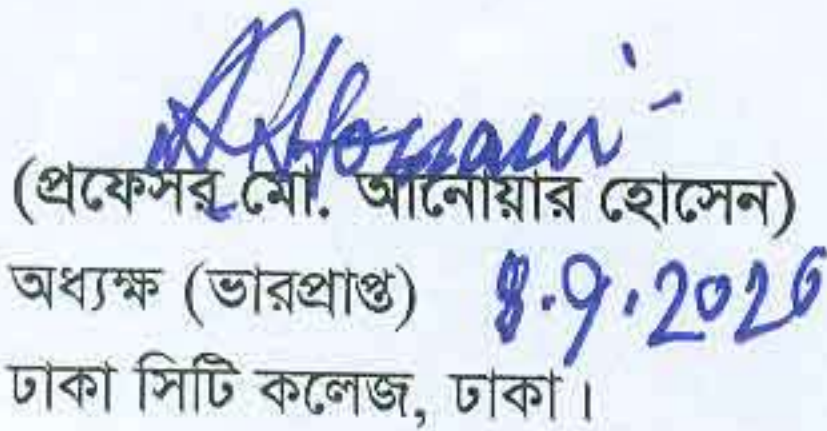 (প্রফেসর মো. আনোয়ার হোসেন)
অধ্যক্ষ (ভারপ্রাপ্ত) 8.9.2026
ঢাকা সিটি কলেজ, ঢাকা।